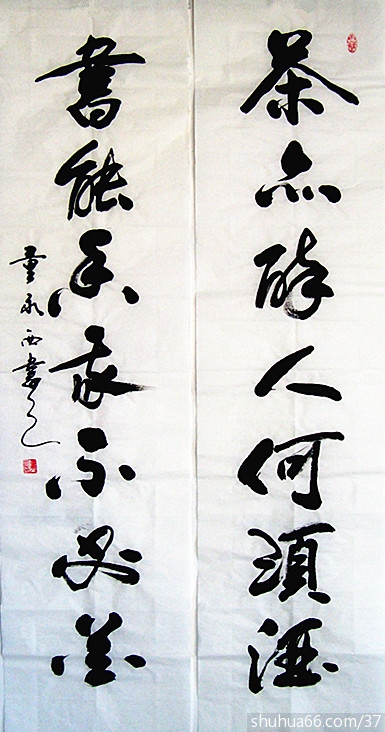 茶亦醉人何須酒
書能香我不必花
董永西書
shuhua66.com/37